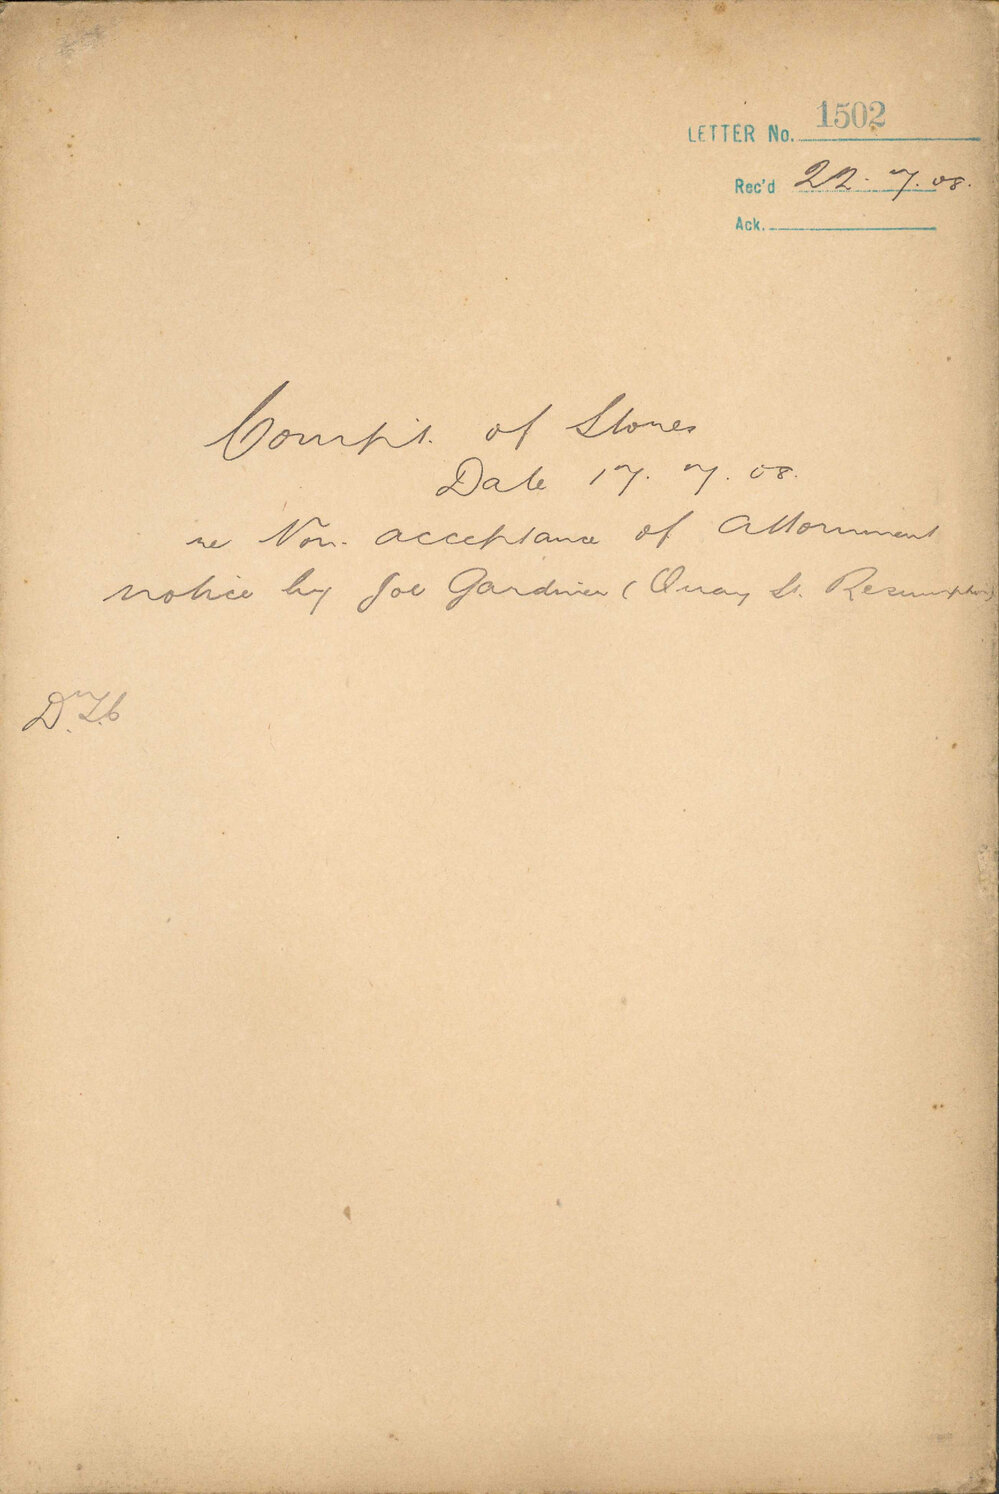 LETTER No. 1502
Rec'd 22.7.08.
Ack.
Compt. of Stores
Date 17.7.08.
re Non-acceptance of Attornment
notice by Joe Gardiner (Quay St. Resumption)